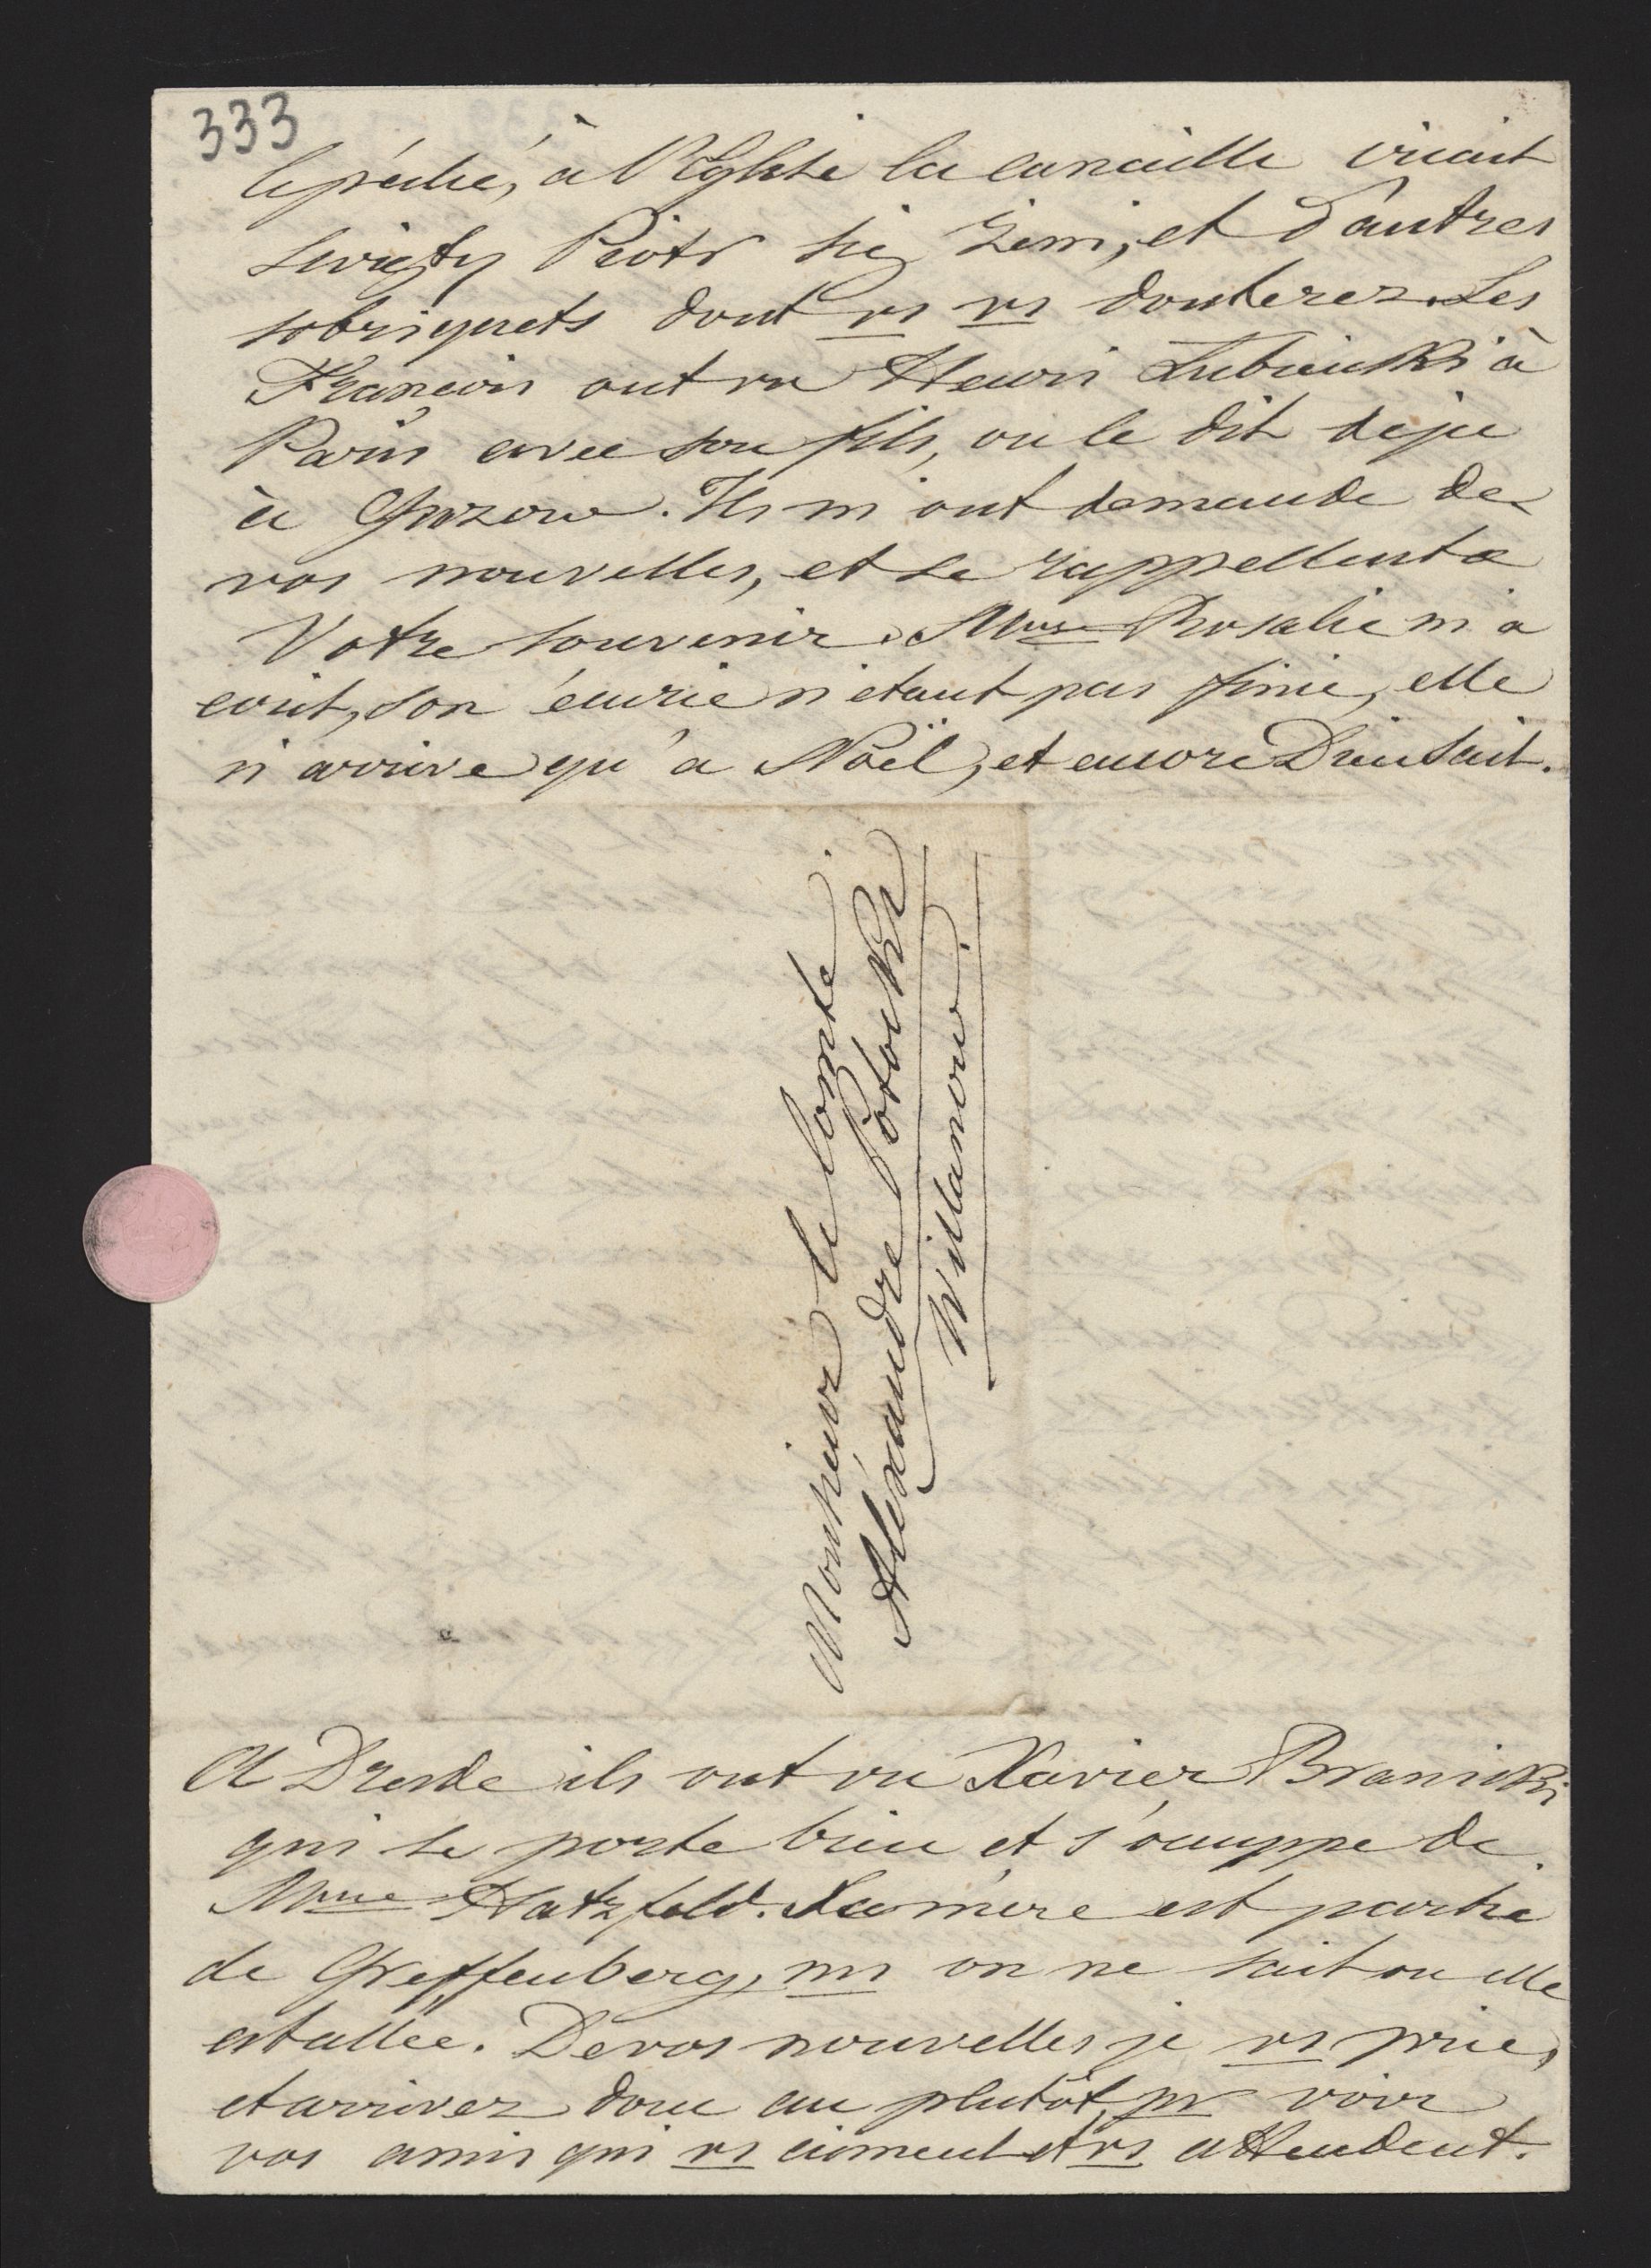 333
le péché, à l'Eglise la canaille criait
swięty Piotr się żeni, et d'autres
sobriquets dont vs vs douterez. Les
François ont vu Henri Lubienski à
Paris avec son fils, on le dit deja
à Guzow. Ils m'ont demandé de
vos nouvelles, et se rappellent a
Votre souvenir. Mme Rosalie m'a
ecrit, son écurie n'etant pas finie, elle
n'arrive qu'a Noël, et encore Dieu sait.
Monsieur le Comte
Aléxandre Potocki
Willanow.
A Dresde ils ont vu Xavier Branicki
qui se porte bien et s'occuppe de
Mme Hatzfeld. Sa mère est partie
de Greffenberg, ms on ne sait ou elle
est allée. De vos nouvelles je vs prie,
et arrivez donc au plutôt pr voir
vos amis qui vs aiment et vs attendent.